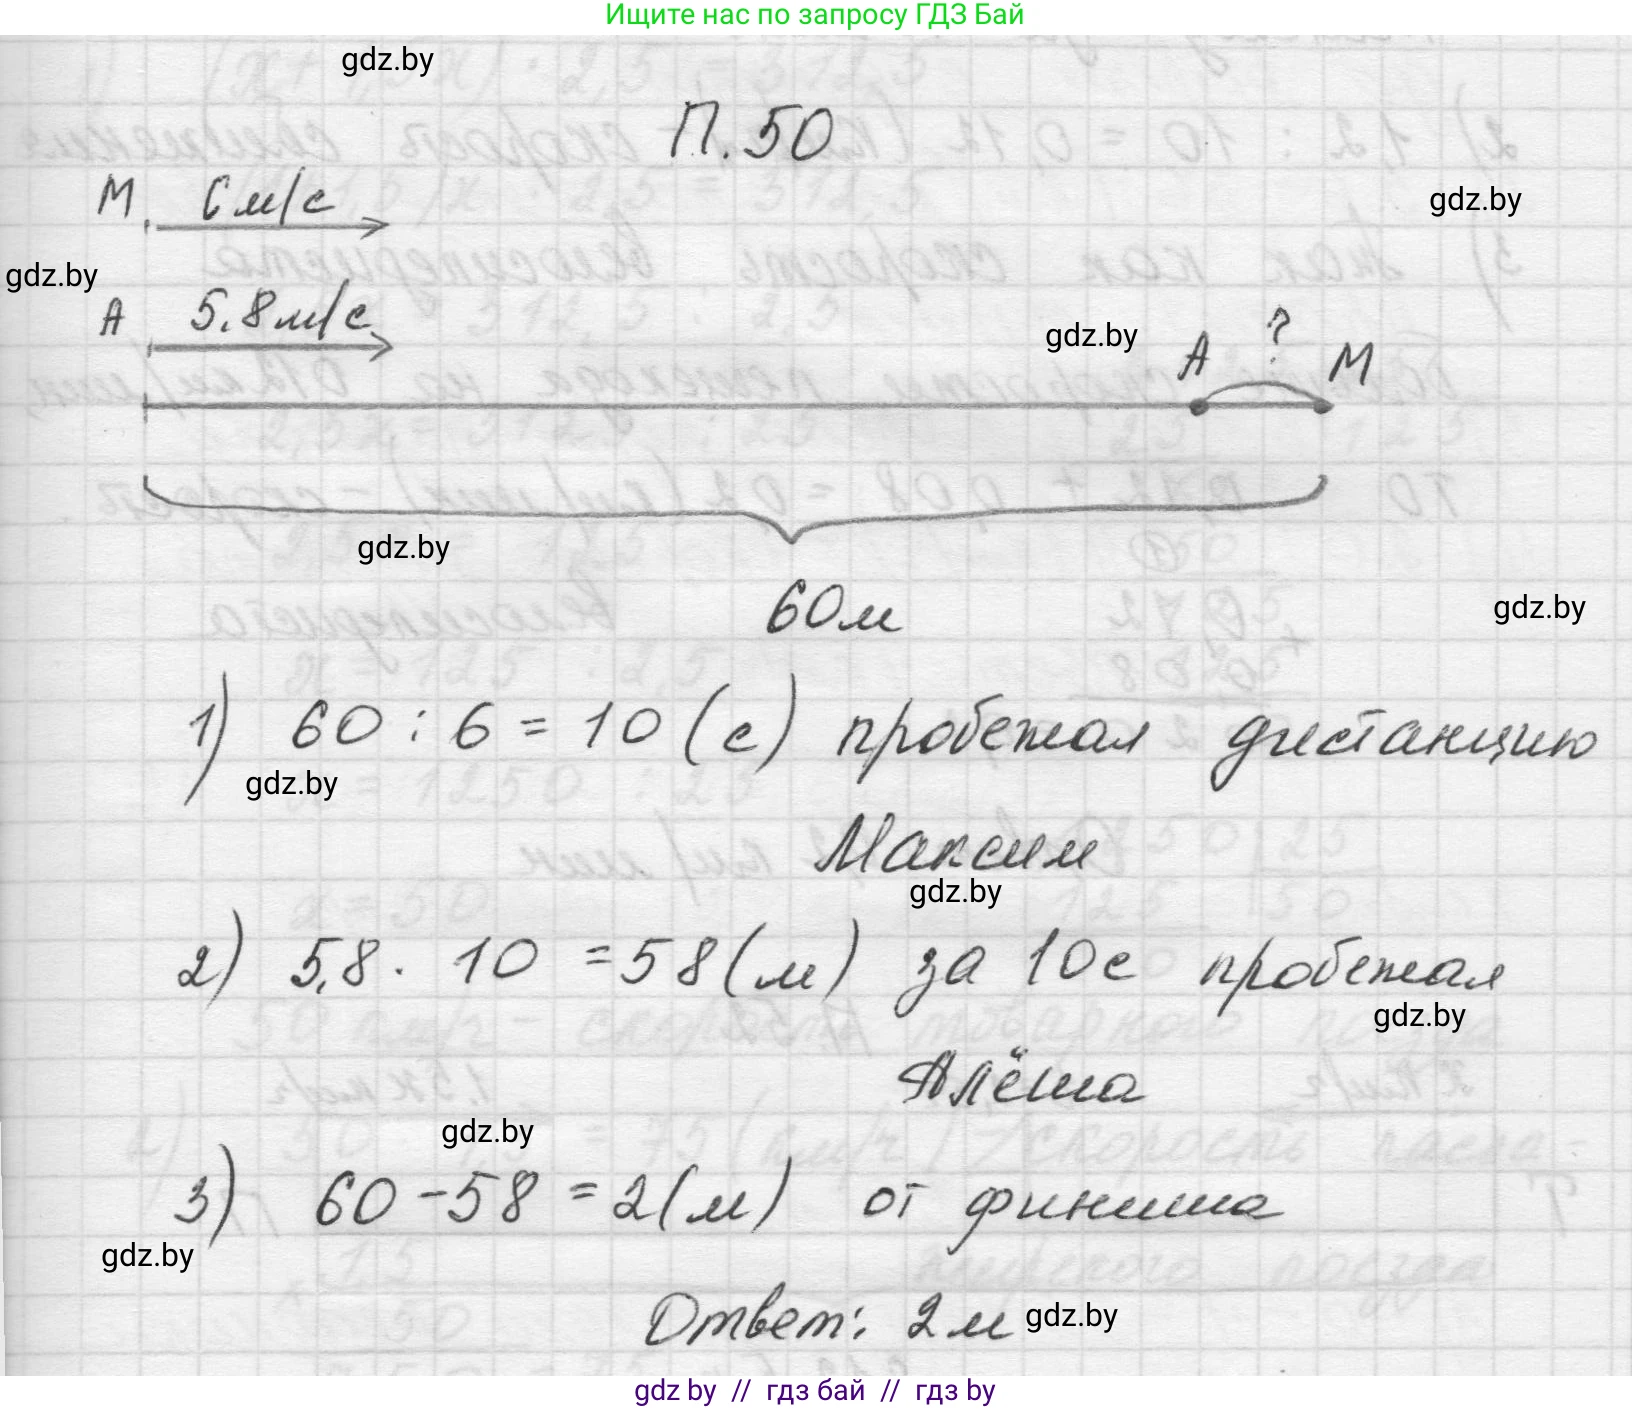 Ищите нас по запросу ГДЗ Бай
gdz.by
П.50
М 6 м/с
gdz.by
gdz.by
А 5,8 м/с
gdz.by
А ? М
gdz.by
60 м
gdz.by
1) 60 : 6 = 10 (с) пробежал дистанцию
gdz.by
Максим
gdz.by
2) 5,8 · 10 = 58 (м) за 10 с пробежал
gdz.by
Алёша
gdz.by
3) 60 - 58 = 2 (м) от финиша
gdz.by
Ответ: 2 м
gdz.by
gdz by // гдз бай // гдз by